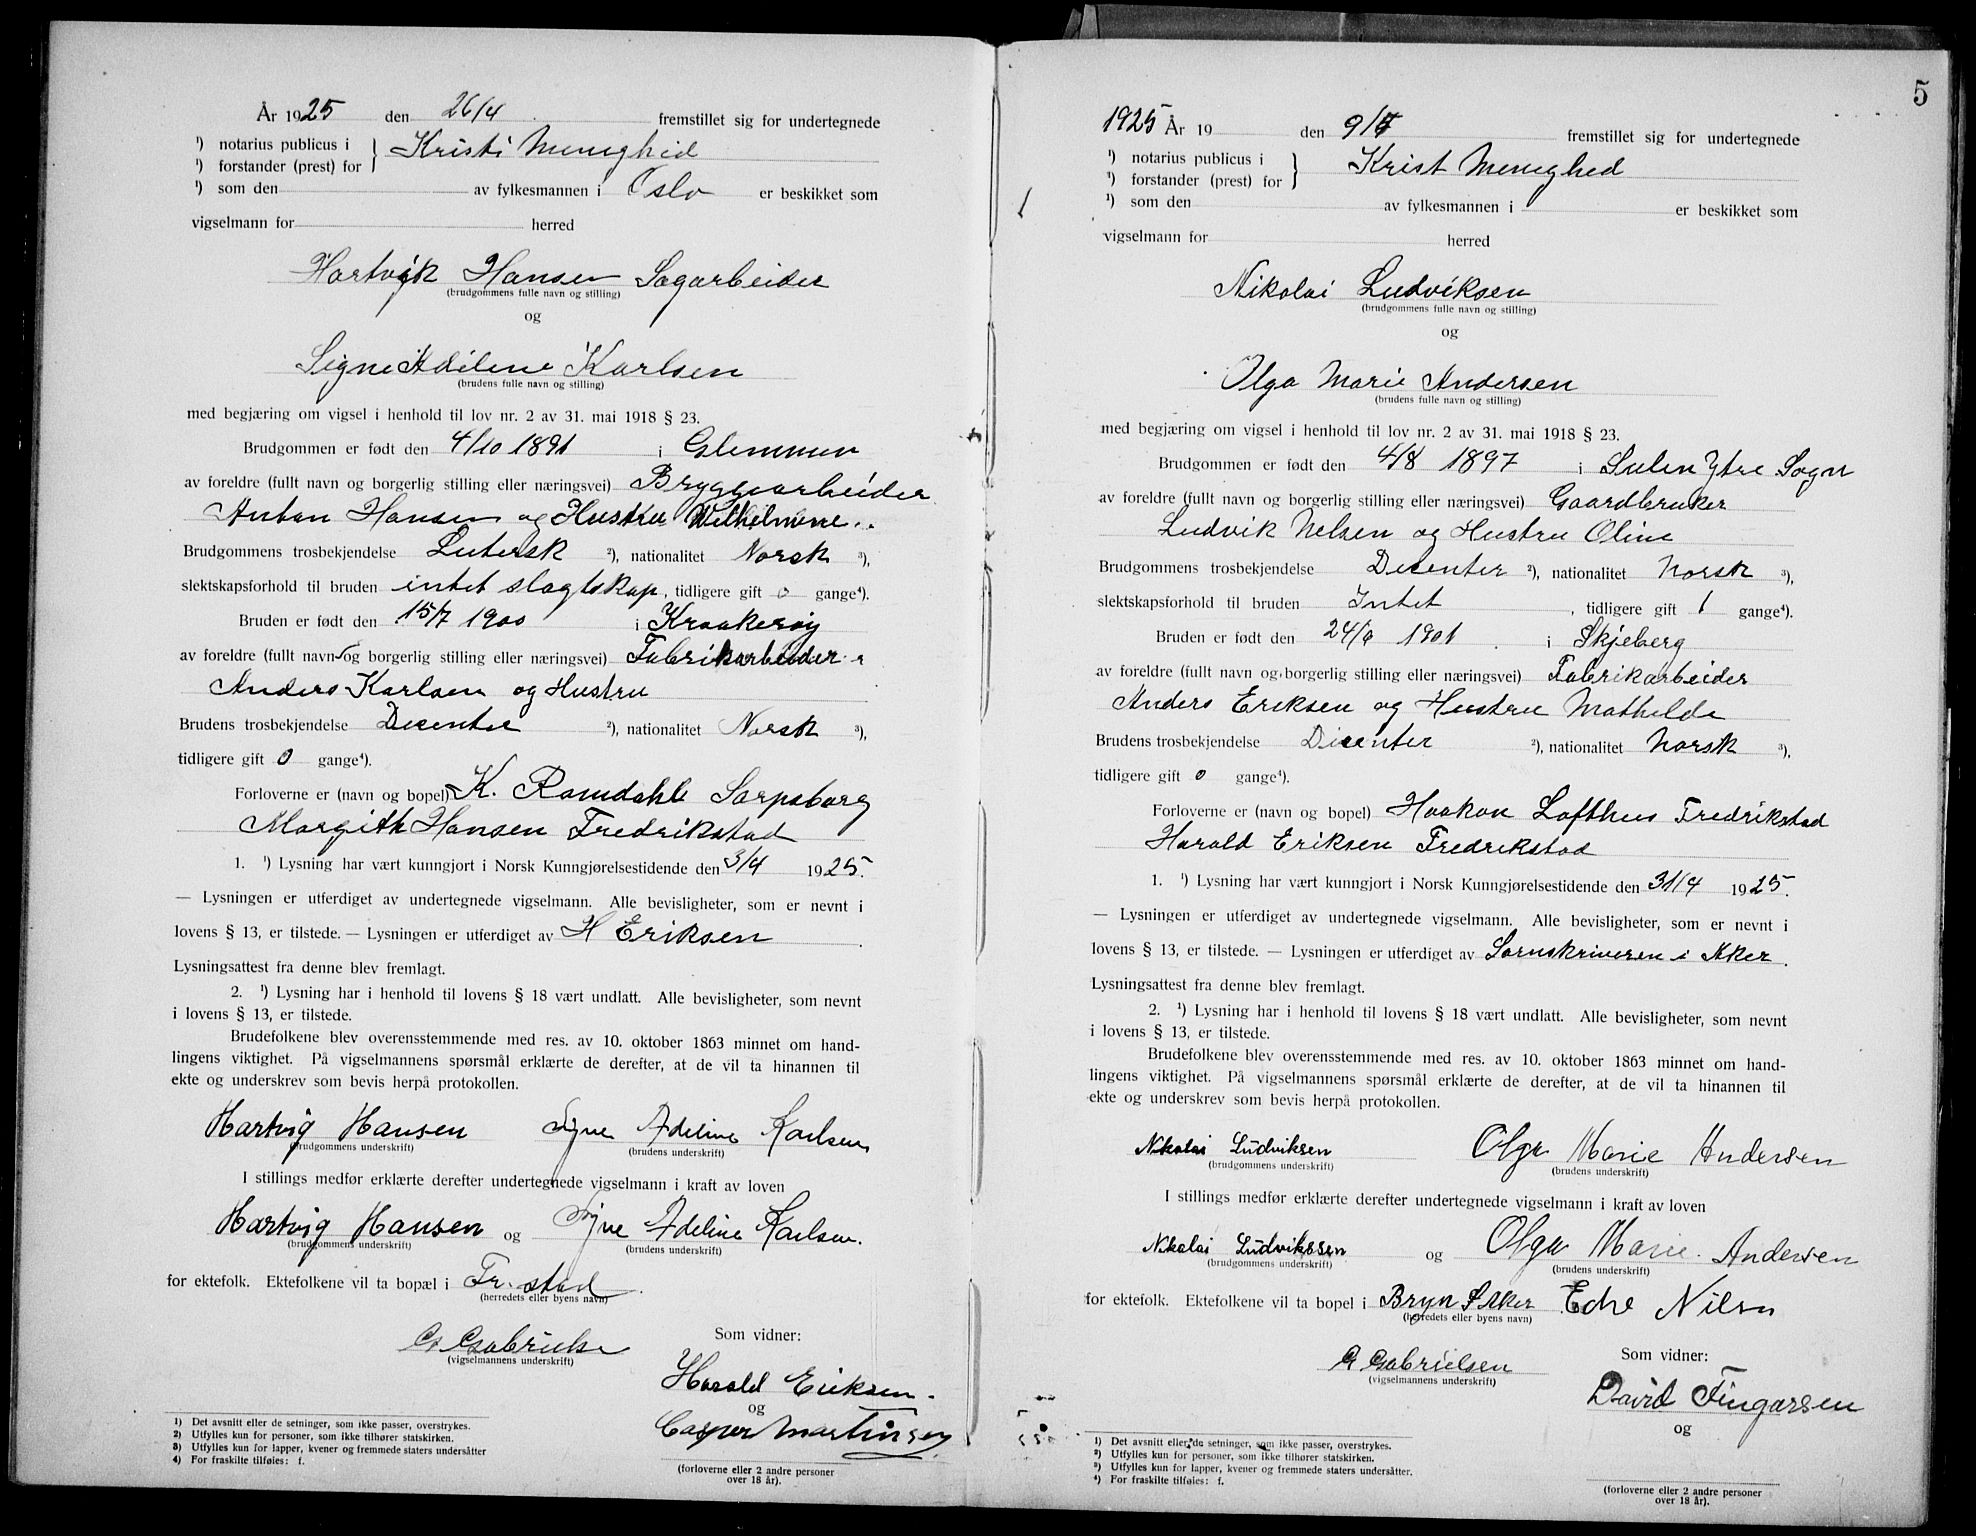 År 1925 den 26/4 fremstillet sig for undertegnede
¹) notarius publicus i
¹) forstander (prest) for } Kristi Menighed
¹) som den av fylkesmannen i Oslo er beskikket som
vigselmann for herred
Hartvik Hansen Sagarbeider
(brudgommens fulle navn og stilling)
og
Signe Adilene Karlsen
(brudens fulle navn og stilling)
med begjæring om vigsel i henhold til lov nr. 2 av 31. mai 1918 § 23.
Brudgommen er født den 4/10 1891 i Glemmen
av foreldre (fullt navn og borgerlig stilling eller næringsvei) Bryggearbeider
Anton Hansen og Hustru Wilhelmine.
Brudgommens trosbekjendelse Lutersk ²), nationalitet Norsk ³),
slektskapsforhold til bruden intet slagtskap, tidligere gift 0 gange⁴).
Bruden er født den 15/7 1900 i Kraakerøy
av foreldre (fullt navn og borgerlig stilling eller næringsvei) Fabrikarbeider
Anders Karlsen og Hustru
Brudens trosbekjendelse Decenter ²), nationalitet Norsk ³),
tidligere gift 0 gange⁴).
Forloverne er (navn og bopel) K. Ramdahl Sarpsborg
Margith Hansen Fredrikstad
1. ¹) Lysning har vært kunngjort i Norsk Kunngjørelsestidende den 3/4 1925.
— Lysningen er utferdiget av undertegnede vigselmann. Alle bevisligheter, som er nevnt i
lovens § 13, er tilstede. — Lysningen er utferdiget av H Eriksen
Lysningsattest fra denne blev fremlagt.
2. ¹) Lysning har i henhold til lovens § 18 vært undlatt. Alle bevisligheter, som nevnt
i lovens § 13, er tilstede.
Brudefolkene blev overensstemmende med res. av 10. oktober 1863 minnet om hand-
lingens viktighet. På vigselmannens spørsmål erklærte de derefter, at de vil ta hinannen til
ekte og underskrev som bevis herpå protokollen.
Hartvig Hansen Signe Adeline Karlsen
(brudgommens underskrift) (brudens underskrift)
I stillings medfør erklærte derefter undertegnede vigselmann i kraft av loven
Hartvig Hansen og Signe Adeline Karlsen.
(brudgommens underskrift) (brudens underskrift)
for ektefolk. Ektefolkene vil ta bopæl i Fr. stad
(herredets eller byens navn)
G Gabrielse
(vigselmannens underskrift)
Som vidner:
Harald Eriksen.
og
Casper Martinsen
(forloverne eller 2 andre personer
over 18 år).
1) Det avsnitt eller de setninger, som ikke passer, overstrykes.
2) Utfylles kun for personer, som ikke tilhører statskirken.
3) Utfylles kun for lapper, kvener og fremmede staters undersåtter
4) For fraskilte tilføies: f.
5
1925 År 19 den 9/ fremstillet sig for undertegnede
¹) notarius publicus i
¹) forstander (prest) for } Krist Menighed
¹) som den av fylkesmannen i er beskikket som
vigselmann for herred
Nikolai Ludviksen
(brudgommens fulle navn og stilling)
og
Olga Marie Andersen
(brudens fulle navn og stilling)
med begjæring om vigsel i henhold til lov nr. 2 av 31. mai 1918 § 23.
Brudgommen er født den 4/8 1897 i Sulen Ytre Sogn
av foreldre (fullt navn og borgerlig stilling eller næringsvei) Gaardbruker
Ludvik Nelsen og Hustru Oline
Brudgommens trosbekjendelse Decenter ²), nationalitet Norsk ³),
slektskapsforhold til bruden Intet, tidligere gift 1 gange⁴).
Bruden er født den 24/6 1901 i Skjeberg
av foreldre (fullt navn og borgerlig stilling eller næringsvei) Fabrikarbeider
Anders Eriksen og Hustru Mathilde
Brudens trosbekjendelse Dicenter ²), nationalitet Norsk ³),
tidligere gift 0 gange⁴).
Forloverne er (navn og bopel) Haakon Lofthus Fredrikstad
Harald Eriksen Fredrikstad
1. ¹) Lysning har vært kunngjort i Norsk Kunngjørelsestidende den 31/4 1925.
— Lysningen er utferdiget av undertegnede vigselmann. Alle bevisligheter, som er nevnt i
lovens § 13, er tilstede. — Lysningen er utferdiget av Sornskriveren i Aker.
Lysningsattest fra denne blev fremlagt.
2. ¹) Lysning har i henhold til lovens § 18 vært undlatt. Alle bevisligheter, som nevnt
i lovens § 13, er tilstede.
Brudefolkene blev overensstemmende med res. av 10. oktober 1863 minnet om hand-
lingens viktighet. På vigselmannens spørsmål erklærte de derefter, at de vil ta hinannen til
ekte og underskrev som bevis herpå protokollen.
Nikolai Ludviksen Olga Marie Andersen
(brudgommens underskrift) (brudens underskrift)
I stillings medfør erklærte derefter undertegnede vigselmann i kraft av loven
Nikolai Ludvikssen og Olga Marie Andersen
(brudgommens underskrift) (brudens underskrift)
for ektefolk. Ektefolkene vil ta bopel i Bryn Aker Nilsen
(herredets eller byens navn)
G Gabrielsen
(vigselmannens underskrift)
Som vidner:
David Fingarsen
og
(forloverne eller 2 andre personer
over 18 år).
¹) Det avsnitt eller de setninger, som ikke passer, overstrykes.
²) Utfylles kun for personer, som ikke tilhører statskirken.
³) Utfylles kun for lapper, kvener og fremmede staters undersåtter.
⁴) For fraskilte tilføies: f.